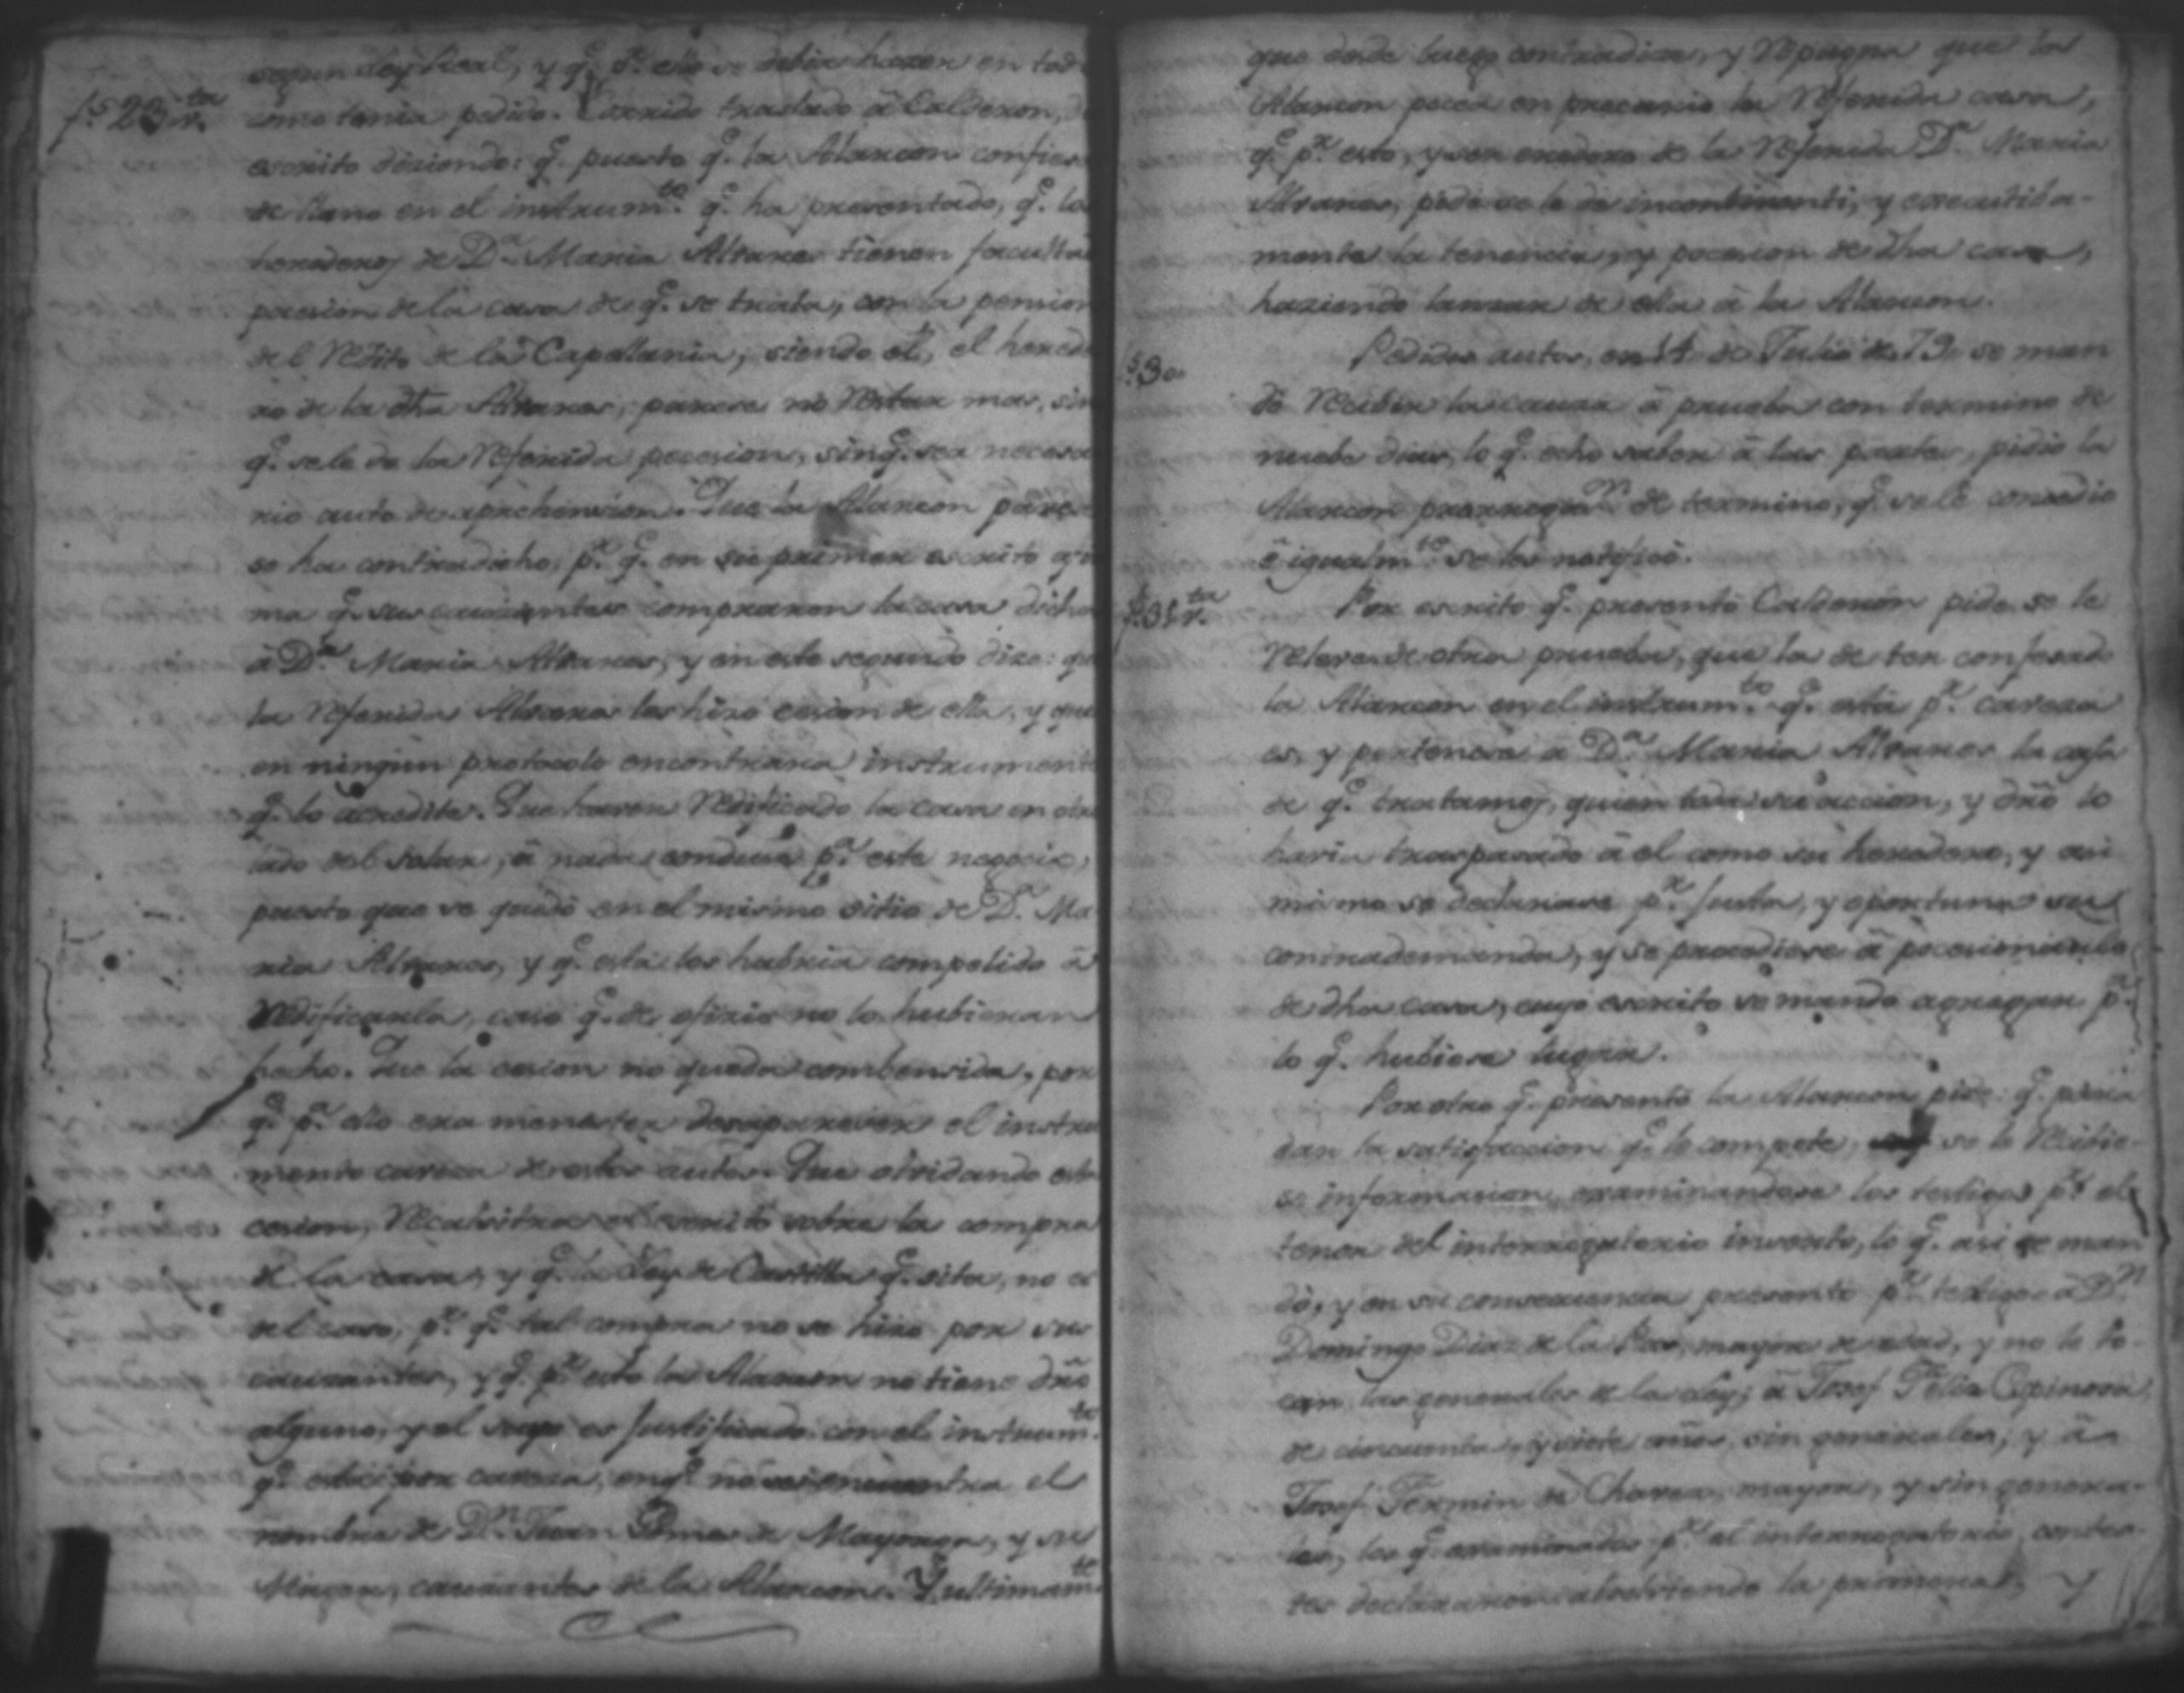 segun Ley Real, y q.e p.r ello se debia hazer en todo
f.s 23 v.ta
como tenia pedido. Corrido traslado â Calderon,
escrito diziendo: q.e puesto q.e la Alarcon confiesa
de llano en el instrum.to q.e ha presentado, q.e los
herederos de D.a Maria Alvares tienen facultad
posesion de la casa de q.e se trata, con la pension
del Redito de la Capellania, siendo el, el herede
ro de la dha Alvares, parece no Restar mas, sino
q.e se le de la Referida posesion, sin q.e sea necesa
rio auto de aprehension. Que la Alarcon parece
se ha contradicho, p.r q.e en su primer escrito afir
ma q.e sus causantes compraron la casa dicha
â D.a Maria Alvares, y en este segundo dize: que
la Referida Alvares les hizo cesion de ella, y que
en ningun protocolo encontrara instrumento
q.e lo acredite. Que haver Redificado la casa en otro
lado del solar, â nada conduce p.a este negocio,
puesto que se quedò en el mismo sitio de D.a Ma
ria Alvares, y q.e esta los hubria compelido â
Redificarla, caso q.e de oficio no lo hubieran
hecho. Que la cesion no queda combensida, por
q.e p.a ello era menester desaparecer el instru
mento caveza de estos autos. Que olvidando esta
cesion, Recalcitra el escrito sobre la compra
de la casa, y q.e la Ley de Castilla q.e sita, no es
del caso, p.r q.e tal compra no se hizo por sus
causantes, y q.e p.r esto la Alarcon no tiene dro
alguno, y el suyo es justificado con el instrum.to
q.e esta por caveza, en q.e no se encuentra el
nombre de D.n Juan de Mayorga, y su
Muger, causantes de la Alarcon. Y ultimam.te
que desde luego contradize, y Repugna que la
Alarcon posea en precario la Referida casa,
q.e p.r esto, y ser eredero de la Referida D.a Maria
Alvares, pide se le de incontinenti, y executiva-
mente la tenencia, y posesion de dha casa,
haziendo lanzar de ella â la Alarcon.
f.s 30
Pedidos autos, en 14 de Julio de 79 se man
dò Recibir la causa â prueba con termino de
nuebe dias, lo q.e echo saber â las partes, pidio la
Alarcon prorrogas.n de termino, q.e se le consedio
ê igualm.te se les notificò.
f.s 31 v.ta
Por escrito q.e presentò Calderon pide se le
Releve de otra prueba, que la de ter confesado
la Alarcon en el instrum.to q.e esta p.r caveza
es, y pertenese a D.a Maria Alvares la casa
de q.e tratamos, quien toda su accion, y dro lo
havia traspasado â el como su heredero, y asi
mismo se declarase p.r justa, y oportuna su
contrademanda, y se procediese â posesionarlo
de dha casa, cuyo escrito se mando agregar p.a
lo q.e hubiese lugar.
Por otro q.e presentò la Alarcon pide: q.e para
dar la satisfaccion q.e le compete, se le Recibie-
se informacion, examinandose los testigos p.r el
tenor del interrogatorio inserto, lo q.e asi se man
dò, y en su consequencia presentò p.r testigos â D.n
Domingo Diaz de la mayor de edad, y no le to-
can las generales de la Ley; â Josef Felix Espinosa
de cincuenta y siete años sin generales; y â
Josef Fermin de Chaves, mayor, y sin genera-
les, los q.e examinados p.r el interrogatorio, contes-
tes declararon absolviendo la primera, y